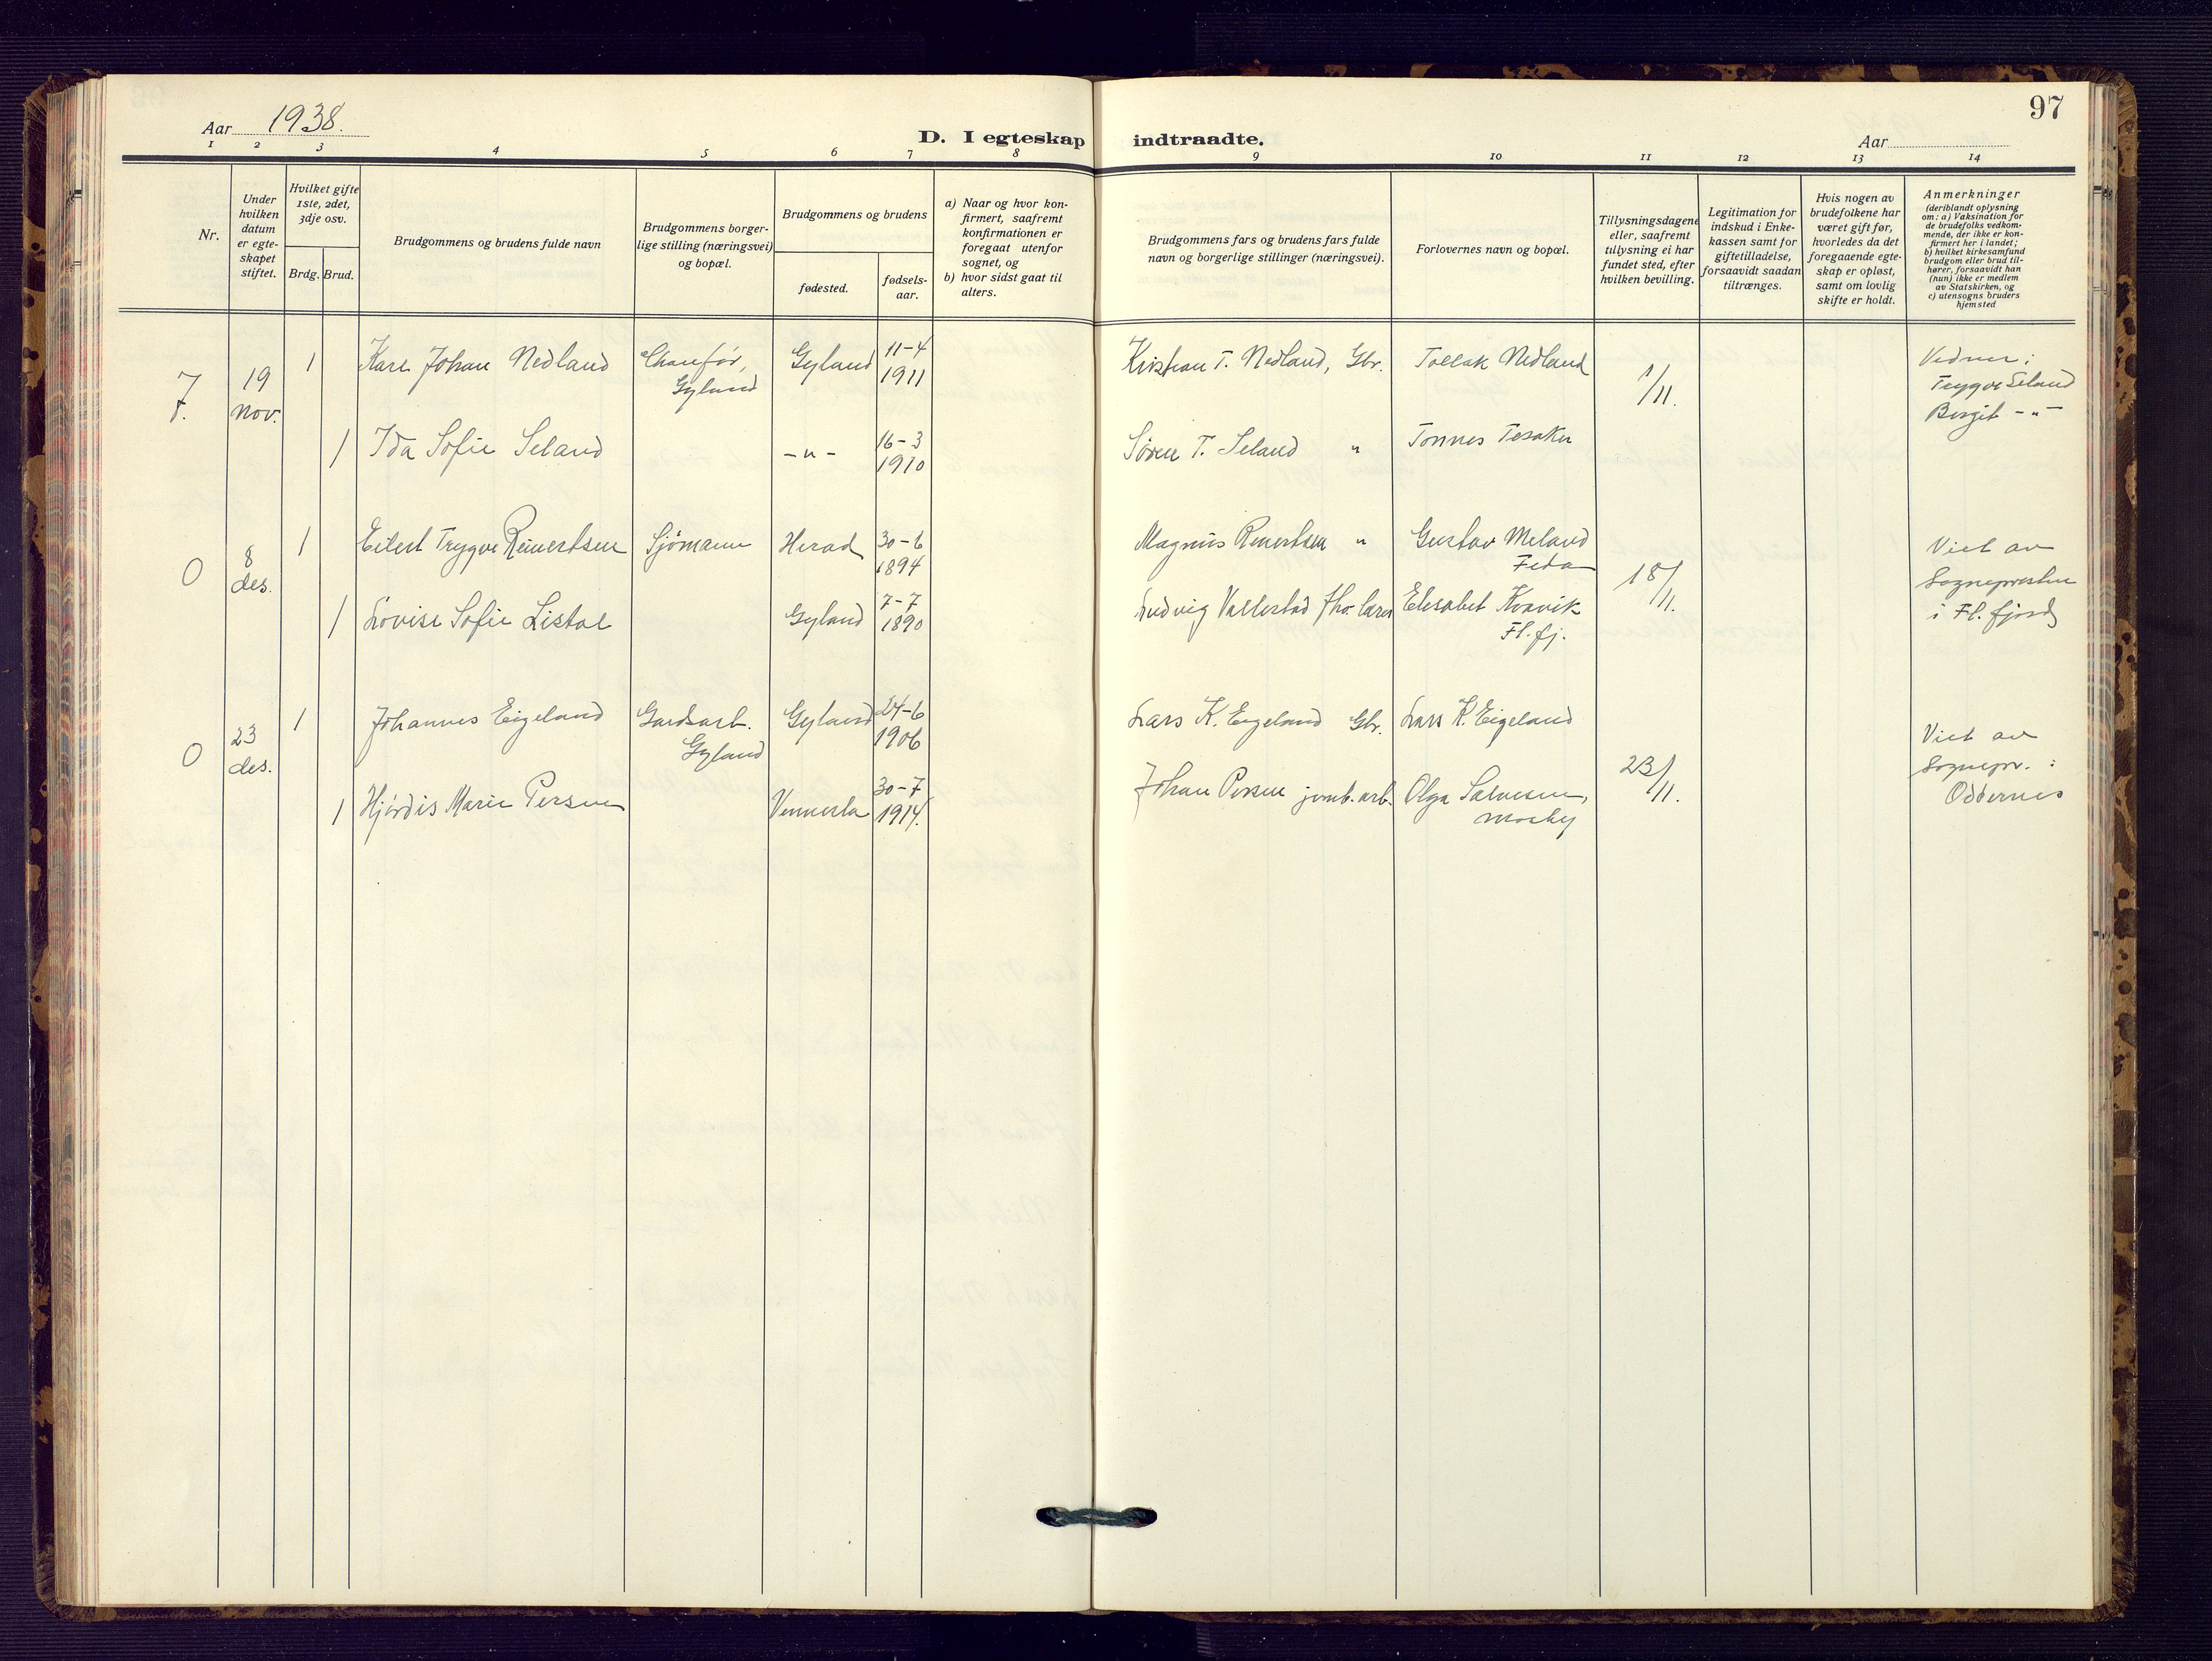 97
Aar 1938.
D. I egteskap indtraadte.
Aar
1 2 3 4 5 6 7 8 9 10 11 12 13 14
Nr.
Under
hvilken
datum
er egte-
skapet
stiftet.
Hvilket gifte
1ste, 2det,
3dje osv.
Brdg. Brud.
Brudgommens og brudens fulde navn
Brudgommens borger-
lige stilling (næringsvei)
og bopæl.
Brudgommens og brudens
fødested.
fødsels-
aar.
a) Naar og hvor kon-
firmert, saafremt
konfirmationen er
foregaat utenfor
sognet, og
b) hvor sidst gaat til
alters.
Brudgommens fars og brudens fars fulde
navn og borgerlige stillinger (næringsvei).
Forlovernes navn og bopæl.
Tillysningsdagene
eller, saafremt
tillysning ei har
fundet sted, efter
hvilken bevilling.
Legitimation for
indskud i Enke-
kassen samt for
giftetilladelse,
forsaavidt saadan
tiltrænges.
Hvis nogen av
brudefolkene har
været gift før,
hvorledes da det
foregaaende egte-
skap er opløst,
samt om lovlig
skifte er holdt.
Anmerkninger
(deriblandt oplysning
om: a) Vaksination for
de brudefolks vedkom-
mende, der ikke er kon-
firmert her i landet;
b) hvilket kirkesamfund
brudgom eller brud til-
hører, forsaavidt han
(hun) ikke er medlem
av Statskirken, og
c) utensogns bruders
hjemsted
7. 19 nov. 1 Kare Johan Nedland Chauför, Gyland Gyland 11-4 1911 Kristian T. Nedland, Gbr. Tollak Nedland 1/11. Vidner:
Trygve Seland
Borgit -"-
1 Ida Sofie Seland -"- 16-3 1910 Sören T. Seland " Tonnes Tesaker
0 8 des. 1 Eilert Trygve Reinertsen Sjömann Herad 30-6 1894 Magnus Reinertsen " Gustav Meland
Feda 18/11. Viet av
Sognepresten
i Fl. fjord
1 Lovise Sofie Listøl Gyland 7-7 1890 Ludvig Vallestad fhv. lærer Elisabet Kvavik
Fl. fj.
0 23 des. 1 Johannes Eigeland Gardsarb. Gyland Gyland 24-6 1906 Lars K. Eigeland Gbr. Lars K. Eigeland 23/11. Viet av
Sognepr. i
Oddernes
1 Hjördis Marie Persen Vennesla 30-7 1914. Johan Persen jernb. arb. Olga Salvesen,
Mosby